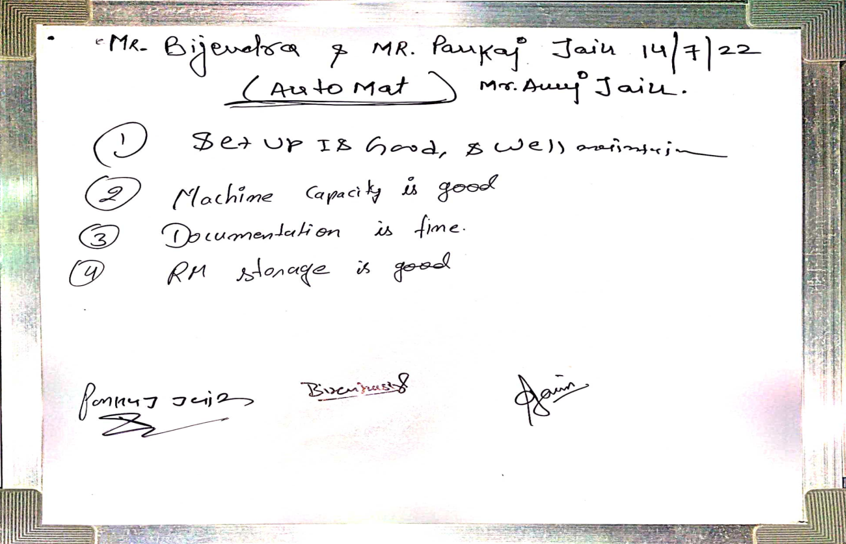 MR. Bijendra & MR. Pankaj Jain 14/7/22
(Auto Mat) Mr. Anuj Jain.
① Set UP IS Good, & well maintain
② Machine capacity is good
③ Documentation is fine.
④ RM storage is good
Pankaj Jain Jain